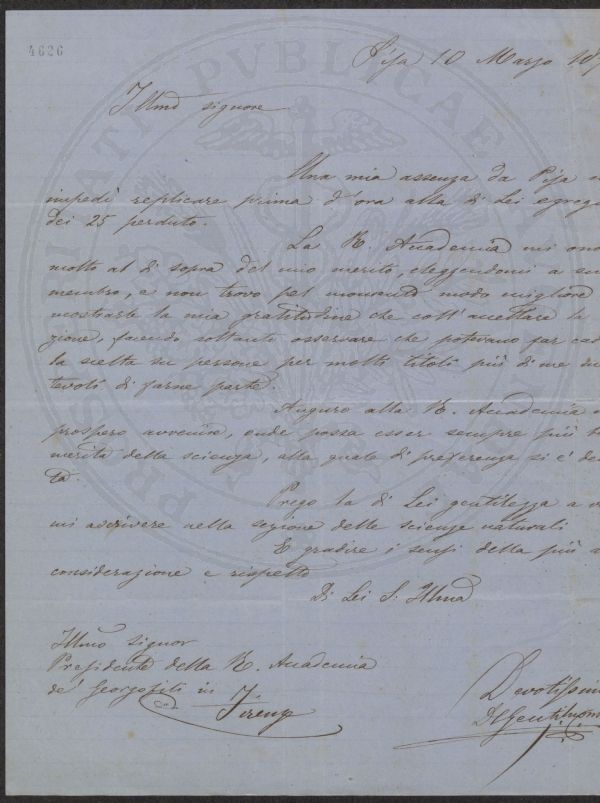 4626
Pisa 10 Marzo 18
Illmo signore
Una mia assenza da Pisa
impedì replicare prima d'ora alla di Lei egreg
dei 25 perduto.
La R. Accademia mi ono
molto al di sopra del mio merito, eleggendomi a su
membro, e non trovo pel momento modo migliore
mostrarle la mia gratitudine che coll'accettare la
zione, facendo soltanto osservare che potevano far cad
la scelta su persone per molti titoli più di me
tevoli di farne parte.
Auguro alla R. Accademia
prospero avvenire, onde possa esser sempre più b
merita della scienza, alla quale di preferenza si è de
ta.
Prego la di Lei gentilezza a v
mi ascrivere nella sezione delle scienze naturali
E gradire i sensi della più a
considerazione e rispetto
Di Lei S. Illma
Illmo Signor
Presidente della R. Accademia
de' Georgofili in
Firenze
Devotissim